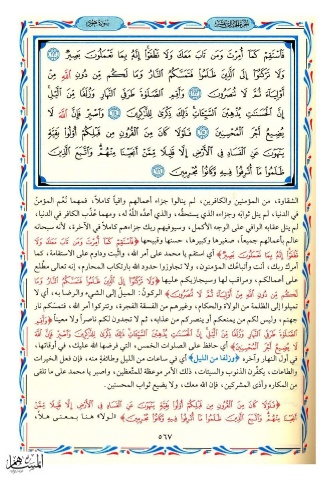 فَاسْتَقِمْ كَمَا أُمِرْتَ وَمَن تَابَ مَعَكَ وَلَا تَطْغَوْا إِنَّهُ بِمَا تَعْمَلُونَ بَصِيرٌ ١١٢
وَلَا تَرْكَنُوا إِلَى الَّذِينَ ظَلَمُوا فَتَمَسَّكُمُ النَّارُ وَمَا لَكُم مِّن دُونِ اللَّهِ مِنْ
أَوْلِيَاءَ ثُمَّ لَا تُنصَرُونَ ١١٣ وَأَقِمِ الصَّلَاةَ طَرَفَيِ النَّهَارِ وَزُلَفًا مِّنَ اللَّيْلِ
إِنَّ الْحَسَنَاتِ يُذْهِبْنَ السَّيِّئَاتِ ذَلِكَ ذِكْرَى لِلذَّاكِرِينَ ١١٤ وَاصْبِرْ فَإِنَّ اللَّهَ لَا
يُضِيعُ أَجْرَ الْمُحْسِنِينَ ١١٥ فَلَوْلَا كَانَ مِنَ الْقُرُونِ مِن قَبْلِكُمْ أُولُوا بَقِيَّةٍ
يَنْهَوْنَ عَنِ الْفَسَادِ فِي الْأَرْضِ إِلَّا قَلِيلًا مِّمَّنْ أَنجَيْنَا مِنْهُمْ وَاتَّبَعَ الَّذِينَ
ظَلَمُوا مَا أُتْرِفُوا فِيهِ وَكَانُوا مُجْرِمِينَ ١١٦
الشقاوة، من المؤمنين والكافرين، لم ينالوا جزاء أعمالهم وافياً كاملاً، فمهما نُعِّم المؤمنُ
في الدنيا، لم ينل ثوابه وجزاءه الذي يستحقُّه، والذي أعدَّه اللَّهُ له، ومهما عُذِّب الكافر في الدنيا،
لم ينل عقابه الوافي على الوجه الأكمل، وسيوفيهم ربك جزاءهم كاملاً في الآخرة، لأنه سبحانه
عالم بأعمالهم جميعاً، صغيرها وكبيرها، حسنها وقبيحها ﴿فَاسْتَقِمْ كَمَا أُمِرْتَ وَمَن تَابَ مَعَكَ وَلَا
تَطْغَوْا إِنَّهُ بِمَا تَعْمَلُونَ بَصِيرٌ﴾ أي استقم يا محمد على أمر الله، واثبت وداوم على الاستقامة، كما
أمرك ربك، أنت وأتباعُك المؤمنون، ولا تجاوزوا حدود الله بارتكاب المحارم، إنه تعالى مطَّلع
على أعمالكم، ومراقب لها وسيجازيكم عليها ﴿وَلَا تَرْكَنُوا إِلَى الَّذِينَ ظَلَمُوا فَتَمَسَّكُمُ النَّارُ وَمَا
لَكُم مِّن دُونِ اللَّهِ مِنْ أَوْلِيَاءَ ثُمَّ لَا تُنصَرُونَ﴾ الركونُ: الميل إلى الشيء والرضا به، أي لا
تميلوا إلى الظلمة من الولاة والحكام، وغيرهم من الفسقة الفجرة، وتتركوا أمر الله، فتمسكم نار
جهنم، وليس لكم من يمنعكم أو ينصركم من عذابه، ثم لا تجدون لكم ناصراً ولا معيناً ﴿وَأَقِمِ
الصَّلَاةَ طَرَفَيِ النَّهَارِ وَزُلَفًا مِّنَ اللَّيْلِ إِنَّ الْحَسَنَاتِ يُذْهِبْنَ السَّيِّئَاتِ ذَلِكَ ذِكْرَى لِلذَّاكِرِينَ وَاصْبِرْ فَإِنَّ اللَّهَ
لَا يُضِيعُ أَجْرَ الْمُحْسِنِينَ﴾ أي حافظ على الصلوات الخمس، التي فرضها الله عليك، في أوقاتها،
في أول النهار وآخره ﴿وزلفا من الليل﴾ أي في ساعات من الليل وطائفةٍ منه، فإن فعل الخيرات
والطاعات، يكفِّرن الذنوب والسيئات، ذلك الأمر موعظة للمتَّعظين، واصبر يا محمد على ما تلقى
من المكاره وأذى المشركين، فإن الله معك، ولا يضيع ثواب المحسنين.
﴿فَلَوْلَا كَانَ مِنَ الْقُرُونِ مِن قَبْلِكُمْ أُولُوا بَقِيَّةٍ يَنْهَوْنَ عَنِ الْفَسَادِ فِي الْأَرْضِ إِلَّا قَلِيلًا مِّمَّنْ
أَنجَيْنَا مِنْهُمْ وَاتَّبَعَ الَّذِينَ ظَلَمُوا مَا أُتْرِفُوا فِيهِ وَكَانُوا مُجْرِمِينَ﴾ لولا هنا بمعنى هلاَّ،
٥٦٧